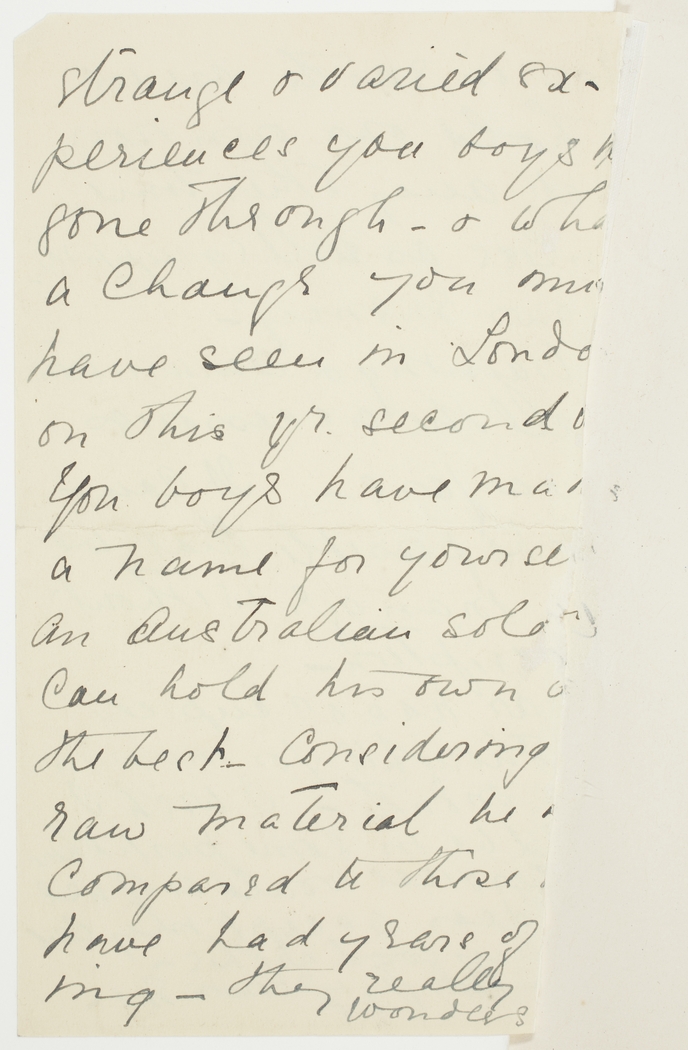 strange & varied ex-
periences you boys
gone through - &
a change you
have seen in
on this yr. second
You boys have
a name for
an Australian
Can hold his own
the best - Considering
raw material he
Compared to those
have had years of
ing - they really
wonders